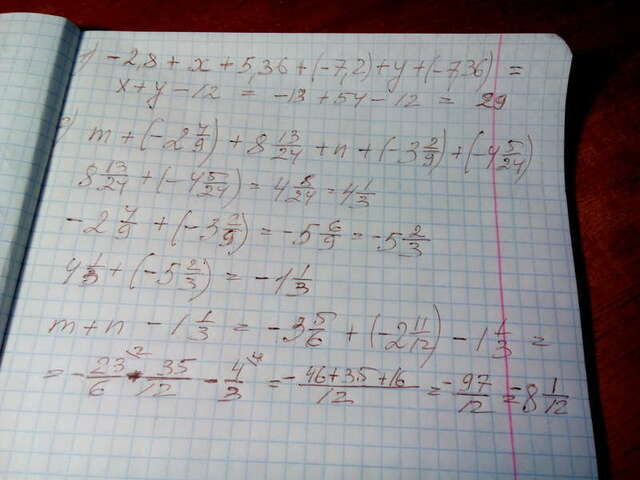 1) -2,8 + x + 5,36 + (-7,2) + y + (-7,36) =
x + y - 12 = -13 + 54 - 12 = 29
2) m + (-2 7/9) + 8 13/24 + n + (-3 2/9) + (-4 5/24)
8 13/24 + (-4 5/24) = 4 8/24 = 4 1/3
-2 7/9 + (-3 2/9) = -5 6/9 = -5 2/3
4 1/3 + (-5 2/3) = -1 1/3
m + n - 1 1/3 = -3 5/6 + (-2 11/12) - 1 1/3 =
= -23/6 - 35/12 - 4/3 = -46+35+16/12 = -97/12 = -8 1/12